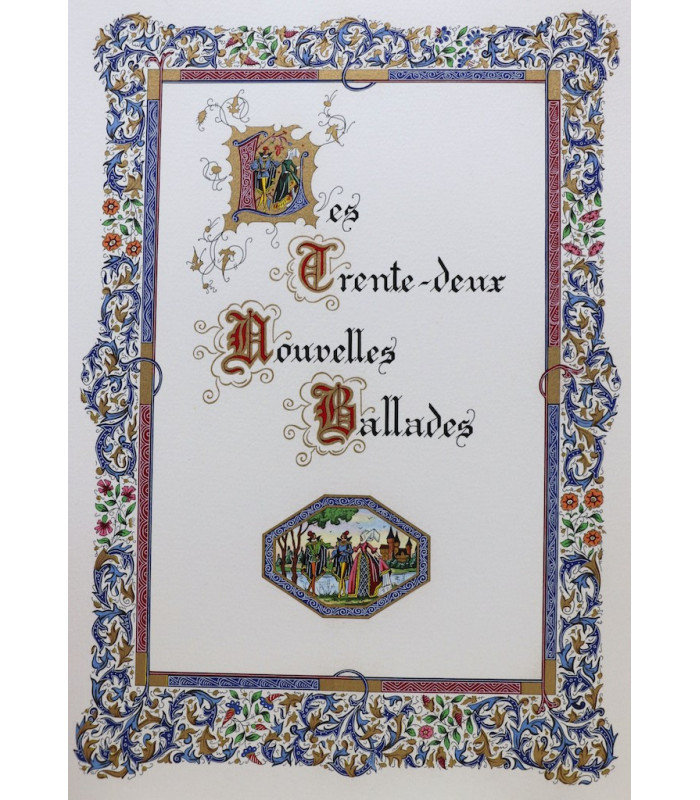 Les
Trente-deux
Nouvelles
Ballades